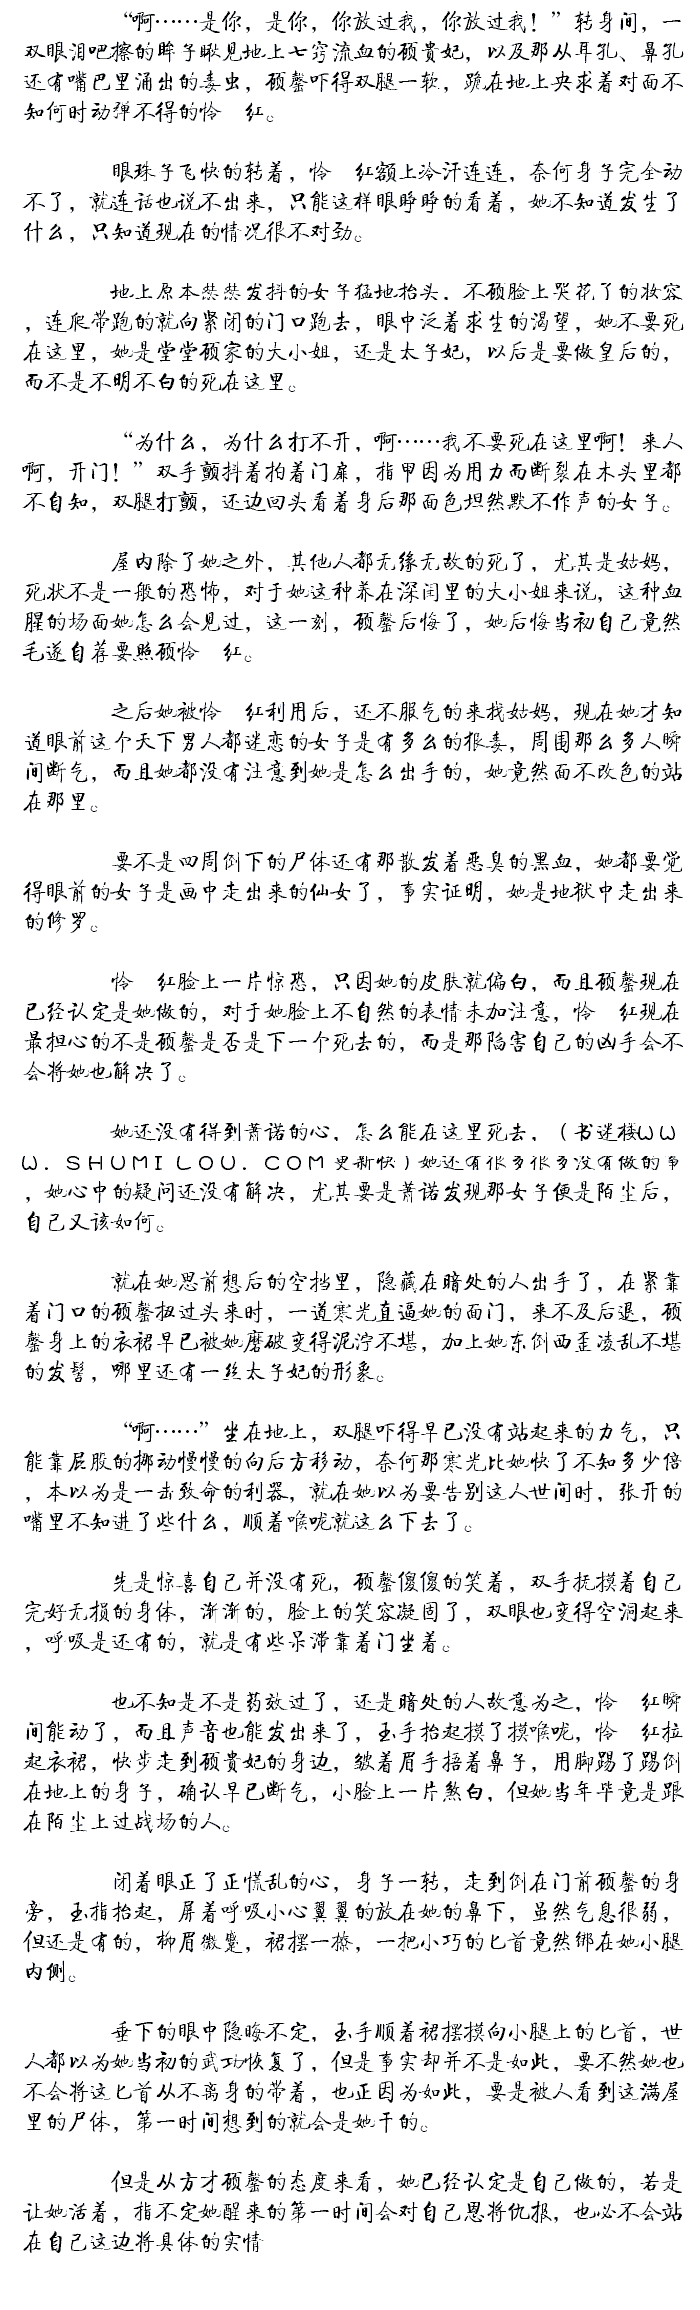 “啊……是你，是你，你放过我，你放过我！”转身间，一
双眼泪吧擦的眸子瞅见地上七窍流血的顾贵妃，以及那从耳孔、鼻孔
还有嘴巴里涌出的毒虫，顾馨吓得双腿一软，跪在地上央求着对面不
知何时动弹不得的怜　红。
眼珠子飞快的转着，怜　红额上冷汗连连，奈何身子完全动
不了，就连话也说不出来，只能这样眼睁睁的看着，她不知道发生了
什么，只知道现在的情况很不对劲。
地上原本瑟瑟发抖的女子猛地抬头，不顾脸上哭花了的妆容
，连爬带跑的就向紧闭的门口跑去，眼中泛着求生的渴望，她不要死
在这里，她是堂堂顾家的大小姐，还是太子妃，以后是要做皇后的，
而不是不明不白的死在这里。
“为什么，为什么打不开，啊……我不要死在这里啊！来人
啊，开门！”双手颤抖着拍着门扉，指甲因为用力而断裂在木头里都
不自知，双腿打颤，还边回头看着身后那面色坦然默不作声的女子。
屋内除了她之外，其他人都无缘无故的死了，尤其是姑妈，
死状不是一般的恐怖，对于她这种养在深闺里的大小姐来说，这种血
腥的场面她怎么会见过，这一刻，顾馨后悔了，她后悔当初自己竟然
毛遂自荐要照顾怜　红。
之后她被怜　红利用后，还不服气的来找姑妈，现在她才知
道眼前这个天下男人都迷恋的女子是有多么的狠毒，周围那么多人瞬
间断气，而且她都没有注意到她是怎么出手的，她竟然面不改色的站
在那里。
要不是四周倒下的尸体还有那散发着恶臭的黑血，她都要觉
得眼前的女子是画中走出来的仙女了，事实证明，她是地狱中走出来
的修罗。
怜　红脸上一片惊恐，只因她的皮肤就偏白，而且顾馨现在
已经认定是她做的，对于她脸上不自然的表情未加注意，怜　红现在
最担心的不是顾馨是否是下一个死去的，而是那陷害自己的凶手会不
会将她也解决了。
她还没有得到萧诺的心，怎么能在这里死去，（书迷楼ＷＷ
Ｗ．ＳＨＵＭＩＬＯＵ．ＣＯＭ更新快）她还有很多很多没有做的事
，她心中的疑问还没有解决，尤其要是萧诺发现那女子便是陌尘后，
自己又该如何。
就在她思前想后的空挡里，隐藏在暗处的人出手了，在紧靠
着门口的顾馨扭过头来时，一道寒光直逼她的面门，来不及后退，顾
馨身上的衣裙早已被她磨破变得泥泞不堪，加上她东倒西歪凌乱不堪
的发髻，哪里还有一丝太子妃的形象。
“啊……”坐在地上，双腿吓得早已没有站起来的力气，只
能靠屁股的挪动慢慢的向后方移动，奈何那寒光比她快了不知多少倍
，本以为是一击致命的利器，就在她以为要告别这人世间时，张开的
嘴里不知进了些什么，顺着喉咙就这么下去了。
先是惊喜自己并没有死，顾馨傻傻的笑着，双手抚摸着自己
完好无损的身体，渐渐的，脸上的笑容凝固了，双眼也变得空洞起来
，呼吸是还有的，就是有些呆滞靠着门坐着。
也不知是不是药效过了，还是暗处的人故意为之，怜　红瞬
间能动了，而且声音也能发出来了，玉手抬起摸了摸喉咙，怜　红拉
起衣裙，快步走到顾贵妃的身边，皱着眉手捂着鼻子，用脚踢了踢倒
在地上的身子，确认早已断气，小脸上一片煞白，但她当年毕竟是跟
在陌尘上过战场的人。
闭着眼正了正慌乱的心，身子一转，走到倒在门前顾馨的身
旁，玉指抬起，屏着呼吸小心翼翼的放在她的鼻下，虽然气息很弱，
但还是有的，柳眉微蹙，裙摆一撩，一把小巧的匕首竟然绑在她小腿
内侧。
垂下的眼中隐晦不定，玉手顺着裙摆摸向小腿上的匕首，世
人都以为她当初的武功恢复了，但是事实却并不是如此，要不然她也
不会将这匕首从不离身的带着，也正因为如此，要是被人看到这满屋
里的尸体，第一时间想到的就会是她干的。
但是从方才顾馨的态度来看，她已经认定是自己做的，若是
让她活着，指不定她醒来的第一时间会对自己恩将仇报，也必不会站
在自己这边将具体的实情